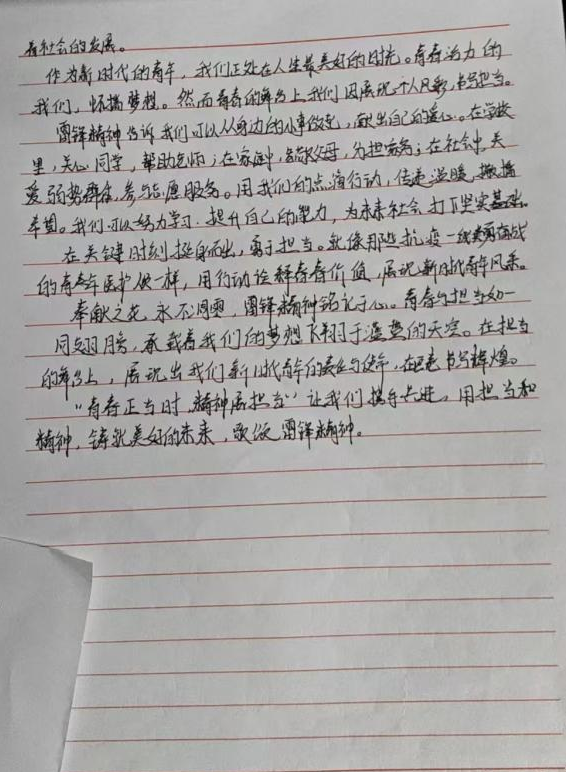 着社会的发展。
作为新时代的青年，我们正处在人生最美好的时光。青春活力的
我们，怀揣梦想。然而青春的舞台上我们因展现个人风彩，书写担当。
雷锋精神告诉我们可以从身边的小事做起，献出自己的爱心。在学校
里，关心同学，帮助老师；在家庭中，父母，分担家务；在社会中，关
爱弱势群体，参与志愿服务。用我们的点滴行动，传递温暖，播撒
希望。我们可以努力学习，提升自己的能力，为未来社会打下坚实基础。
在关键时刻挺身而出，勇于担当。就像那些抗疫一线英勇奋战
的青年医护人一样，用行动诠释青春价值，展现新时代青年风采。
奉献之花永不凋零，雷锋精神铭记于心。青春与担当如一
同翅膀，承载着我们的梦想飞翔于湛蓝的天空。在担当
的舞台上，展现出我们新时代青年的责任与使命，在书写辉煌。
“青春正当时，精神展担当”让我们携手共进，用担当和
精神，铸就美好的未来，歌颂雷锋精神。